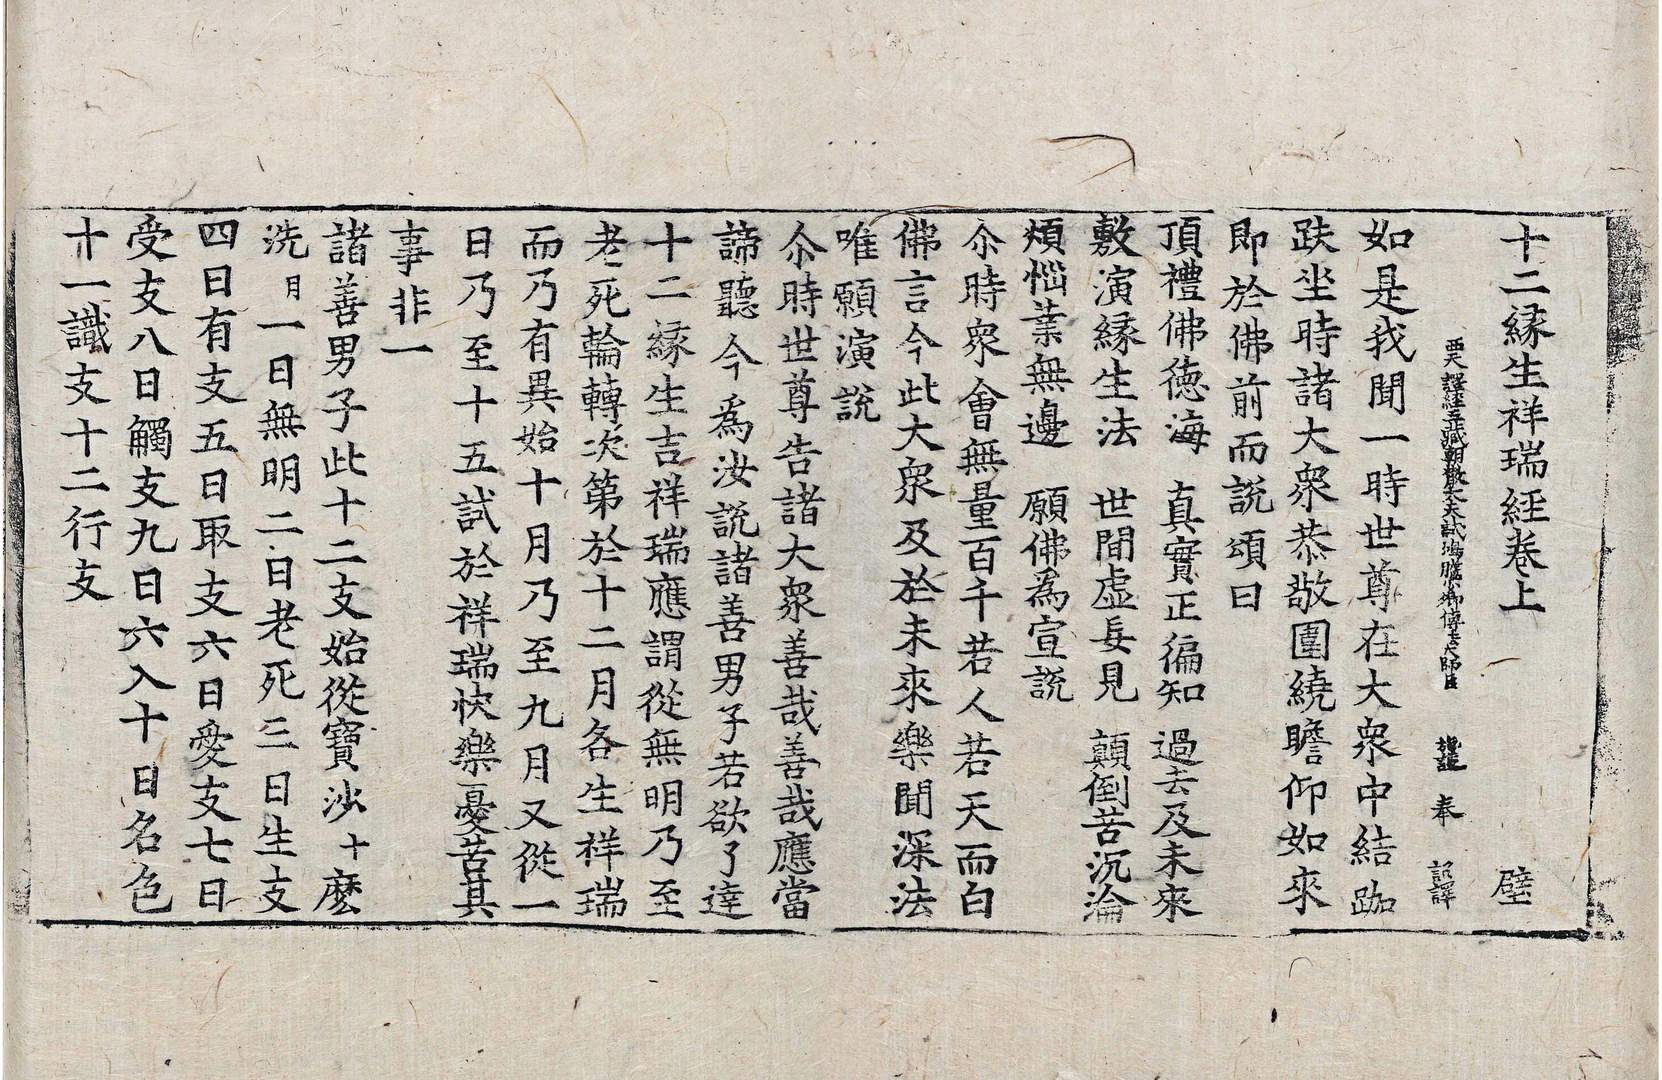 十二緣生祥瑞經卷上　璧
西天譯經三藏朝散大夫試鴻臚少卿傳法大師臣　施護　奉　詔譯
如是我聞一時世尊在大衆中結跏
趺坐時諸大衆恭敬圍繞瞻仰如來
即於佛前而說頌曰
頂禮佛德海　真實正徧知　過去及未來
敷演緣生法　世間虛妄見　顛倒苦沉淪
煩惱業無邊　願佛為宣說
尒時衆會無量百千若人若天而白
佛言今此大衆及於未來樂聞深法
唯願演說
尒時世尊告諸大衆善哉善哉應當
諦聽今為汝說諸善男子若欲了達
十二緣生吉祥瑞應謂從無明乃至
老死輪轉次第於十二月各生祥瑞
而乃有異始十月乃至九月又從一
日乃至十五試於祥瑞快樂憂苦其
事非一
諸善男子此十二支始從寶沙十麼
洗月一日無明二日老死三日生支
四日有支五日取支六日愛支七日
受支八日觸支九日六入十日名色
十一識支十二行支